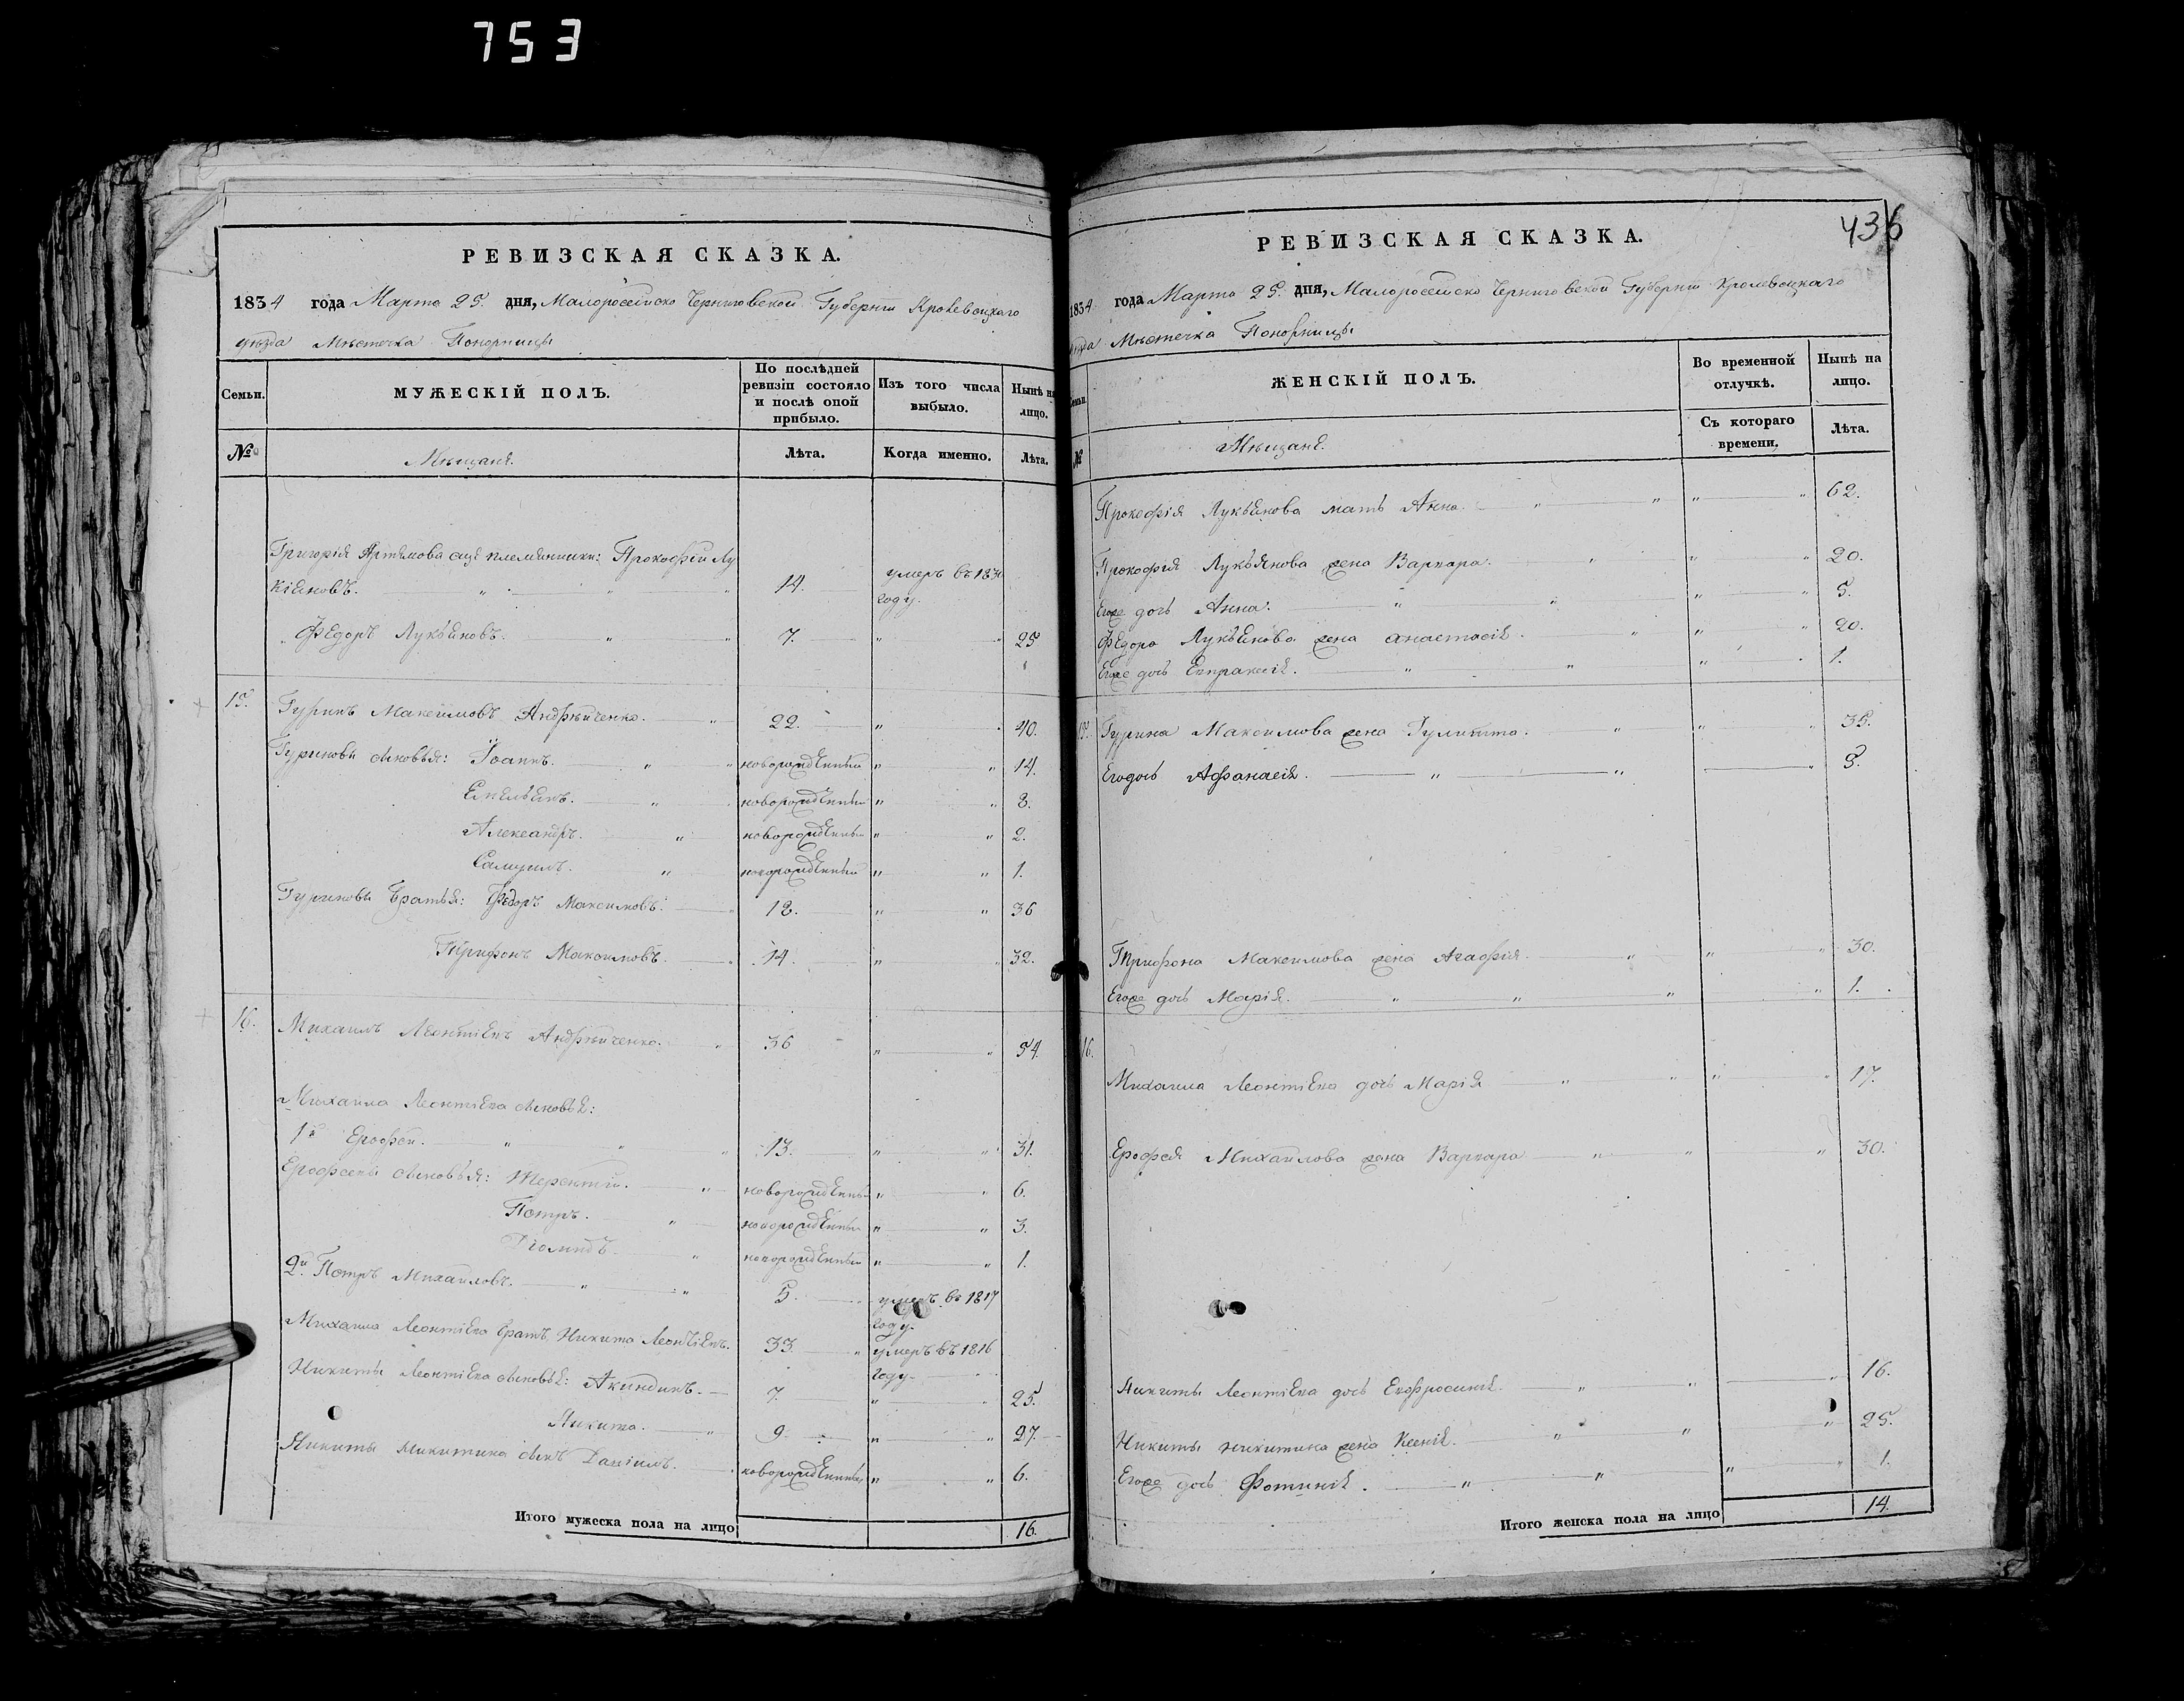 753
РЕВИЗСКАЯ СКАЗКА.
1834 года Марта 25. дня, Малороссійско Черниговской Губерніи Кролевецкаго
уѣзда Мѣстечка Понорницы
Семьи. МУЖЕСКІЙ ПОЛЪ. По послѣдней ревизіи состояло и послѣ оной прибыло. Изъ того числа выбыло. Нынѣ на лицо.
№ Мѣщане. Лѣта. Когда именно. Лѣта.
Григорія Артемова племянники: Прокофій Лу
кіяновъ. 14. умеръ въ 1830 году.
Федоръ Лукьяновъ. 7. 25
15. Гуринъ Максимовъ Андрѣйченко. 22. 40.
Гуриновы сыновья: Іоаннъ. новорожденный 14.
Емельянъ. новорожденный 8.
Александръ. новорожденный 2.
Самуилъ. новорожденный 1.
Гуриновы братья: Федоръ Максимовъ. 18. 36
Трифонъ Максимовъ. 14. 32.
16. Михаилъ Леонтіевъ Андрѣйченко. 36 54.
Михаила Леонтіева сыновья:
1й Ерофей. 13. 31.
Ерофеевы сыновья: Терентій. новорожденный 6.
Петръ. новорожденный 3.
новорожденный 1.
2й Петръ Михайловъ. 5. умеръ въ 1817 году.
Михаила Леонтіева братъ Никита Леонтіевъ. 33. умеръ въ 1816 году.
Никиты Леонтіева сыновья: Акиндинъ. 7. 25.
Никита. 9. 27.
Никиты Никитина сынъ Даніилъ. новорожденный 6.
Итого мужеска пола на лицо 16.
436
РЕВИЗСКАЯ СКАЗКА.
1834 года Марта 25. дня, Малороссійско Черниговской Губерніи Кролевецкаго
уѣзда Мѣстечка Понорницы
Семьи. ЖЕНСКІЙ ПОЛЪ. Во временной отлучкѣ. Нынѣ на лицо.
№ Мѣщане. Съ котораго времени. Лѣта.
Прокофія Лукьянова мать Анна. 62.
Прокофія Лукьянова жена Варвара. 20.
Егоже дочь Анна. 5.
Федора Лукьянова жена Анастасія. 20.
Егоже дочь Евпраксія. 1.
15. Гурина Максимова жена Гулитта. 35.
Его дочь Афанасія. 8.
Трифона Максимова жена Агафія. 30.
Егоже дочь Марія. 1.
16.
Михаила Леонтіева дочь Марія 17.
Ерофея Михайлова жена Варвара 30.
Никиты Леонтіева дочь Евфросинія. 16.
Никиты Никитина жена Ксенія. 25.
Егоже дочь Фотинія. 1.
Итого женска пола на лицо 14.